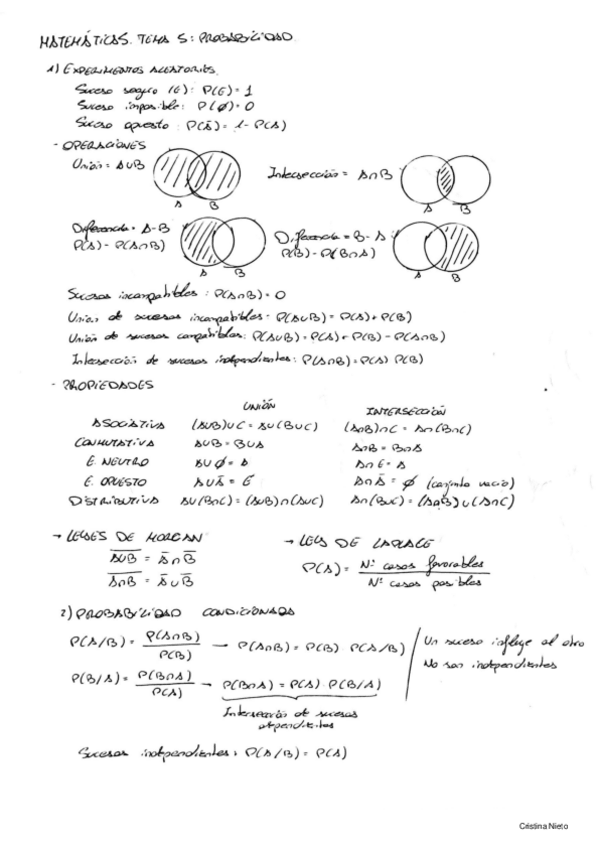 MATEMÁTICAS. TEMA 5: PROBABILIDAD
1) EXPERIMENTOS ALEATORIOS.
Suceso seguro (E): P(E) = 1
Suceso imposible: P(∅) = 0
Suceso opuesto: P(Ā) = 1 - P(A)
- OPERACIONES
Unión = A∪B
A B
Intersección = A∩B
A B
Diferencia = A - B
P(A) - P(A∩B)
A B
Diferencia = B - A
P(B) - P(B∩A)
A B
Sucesos incompatibles: P(A∩B) = 0
Unión de sucesos incompatibles: P(A∪B) = P(A) + P(B)
Unión de sucesos compatibles: P(A∪B) = P(A) + P(B) - P(A∩B)
Intersección de sucesos independientes: P(A∩B) = P(A) · P(B)
- PROPIEDADES
UNIÓN INTERSECCIÓN
ASOCIATIVA (A∪B)∪C = A∪(B∪C) (A∩B)∩C = A∩(B∩C)
CONMUTATIVA A∪B = B∪A A∩B = B∩A
E. NEUTRO A∪∅ = A A∩E = A
E. OPUESTO A∪Ā = E A∩Ā = ∅ (conjunto vacío)
DISTRIBUTIVA A∪(B∩C) = (A∪B)∩(A∪C) A∩(B∪C) = (A∩B)∪(A∩C)
→ LEYES DE MORGAN
A∪B = Ā∩B̄
A∩B = Ā∪B̄
→ LEY DE LAPLACE
P(A) = Nº casos favorables
Nº casos posibles
2) PROBABILIDAD CONDICIONADA
P(A/B) = P(A∩B) / P(B) → P(A∩B) = P(B) · P(A/B)
P(B/A) = P(B∩A) / P(A) → P(B∩A) = P(A) · P(B/A)
Intersección de sucesos
dependientes
Un suceso influye al otro
No son independientes
Sucesos independientes: P(A/B) = P(A)
Cristina Nieto